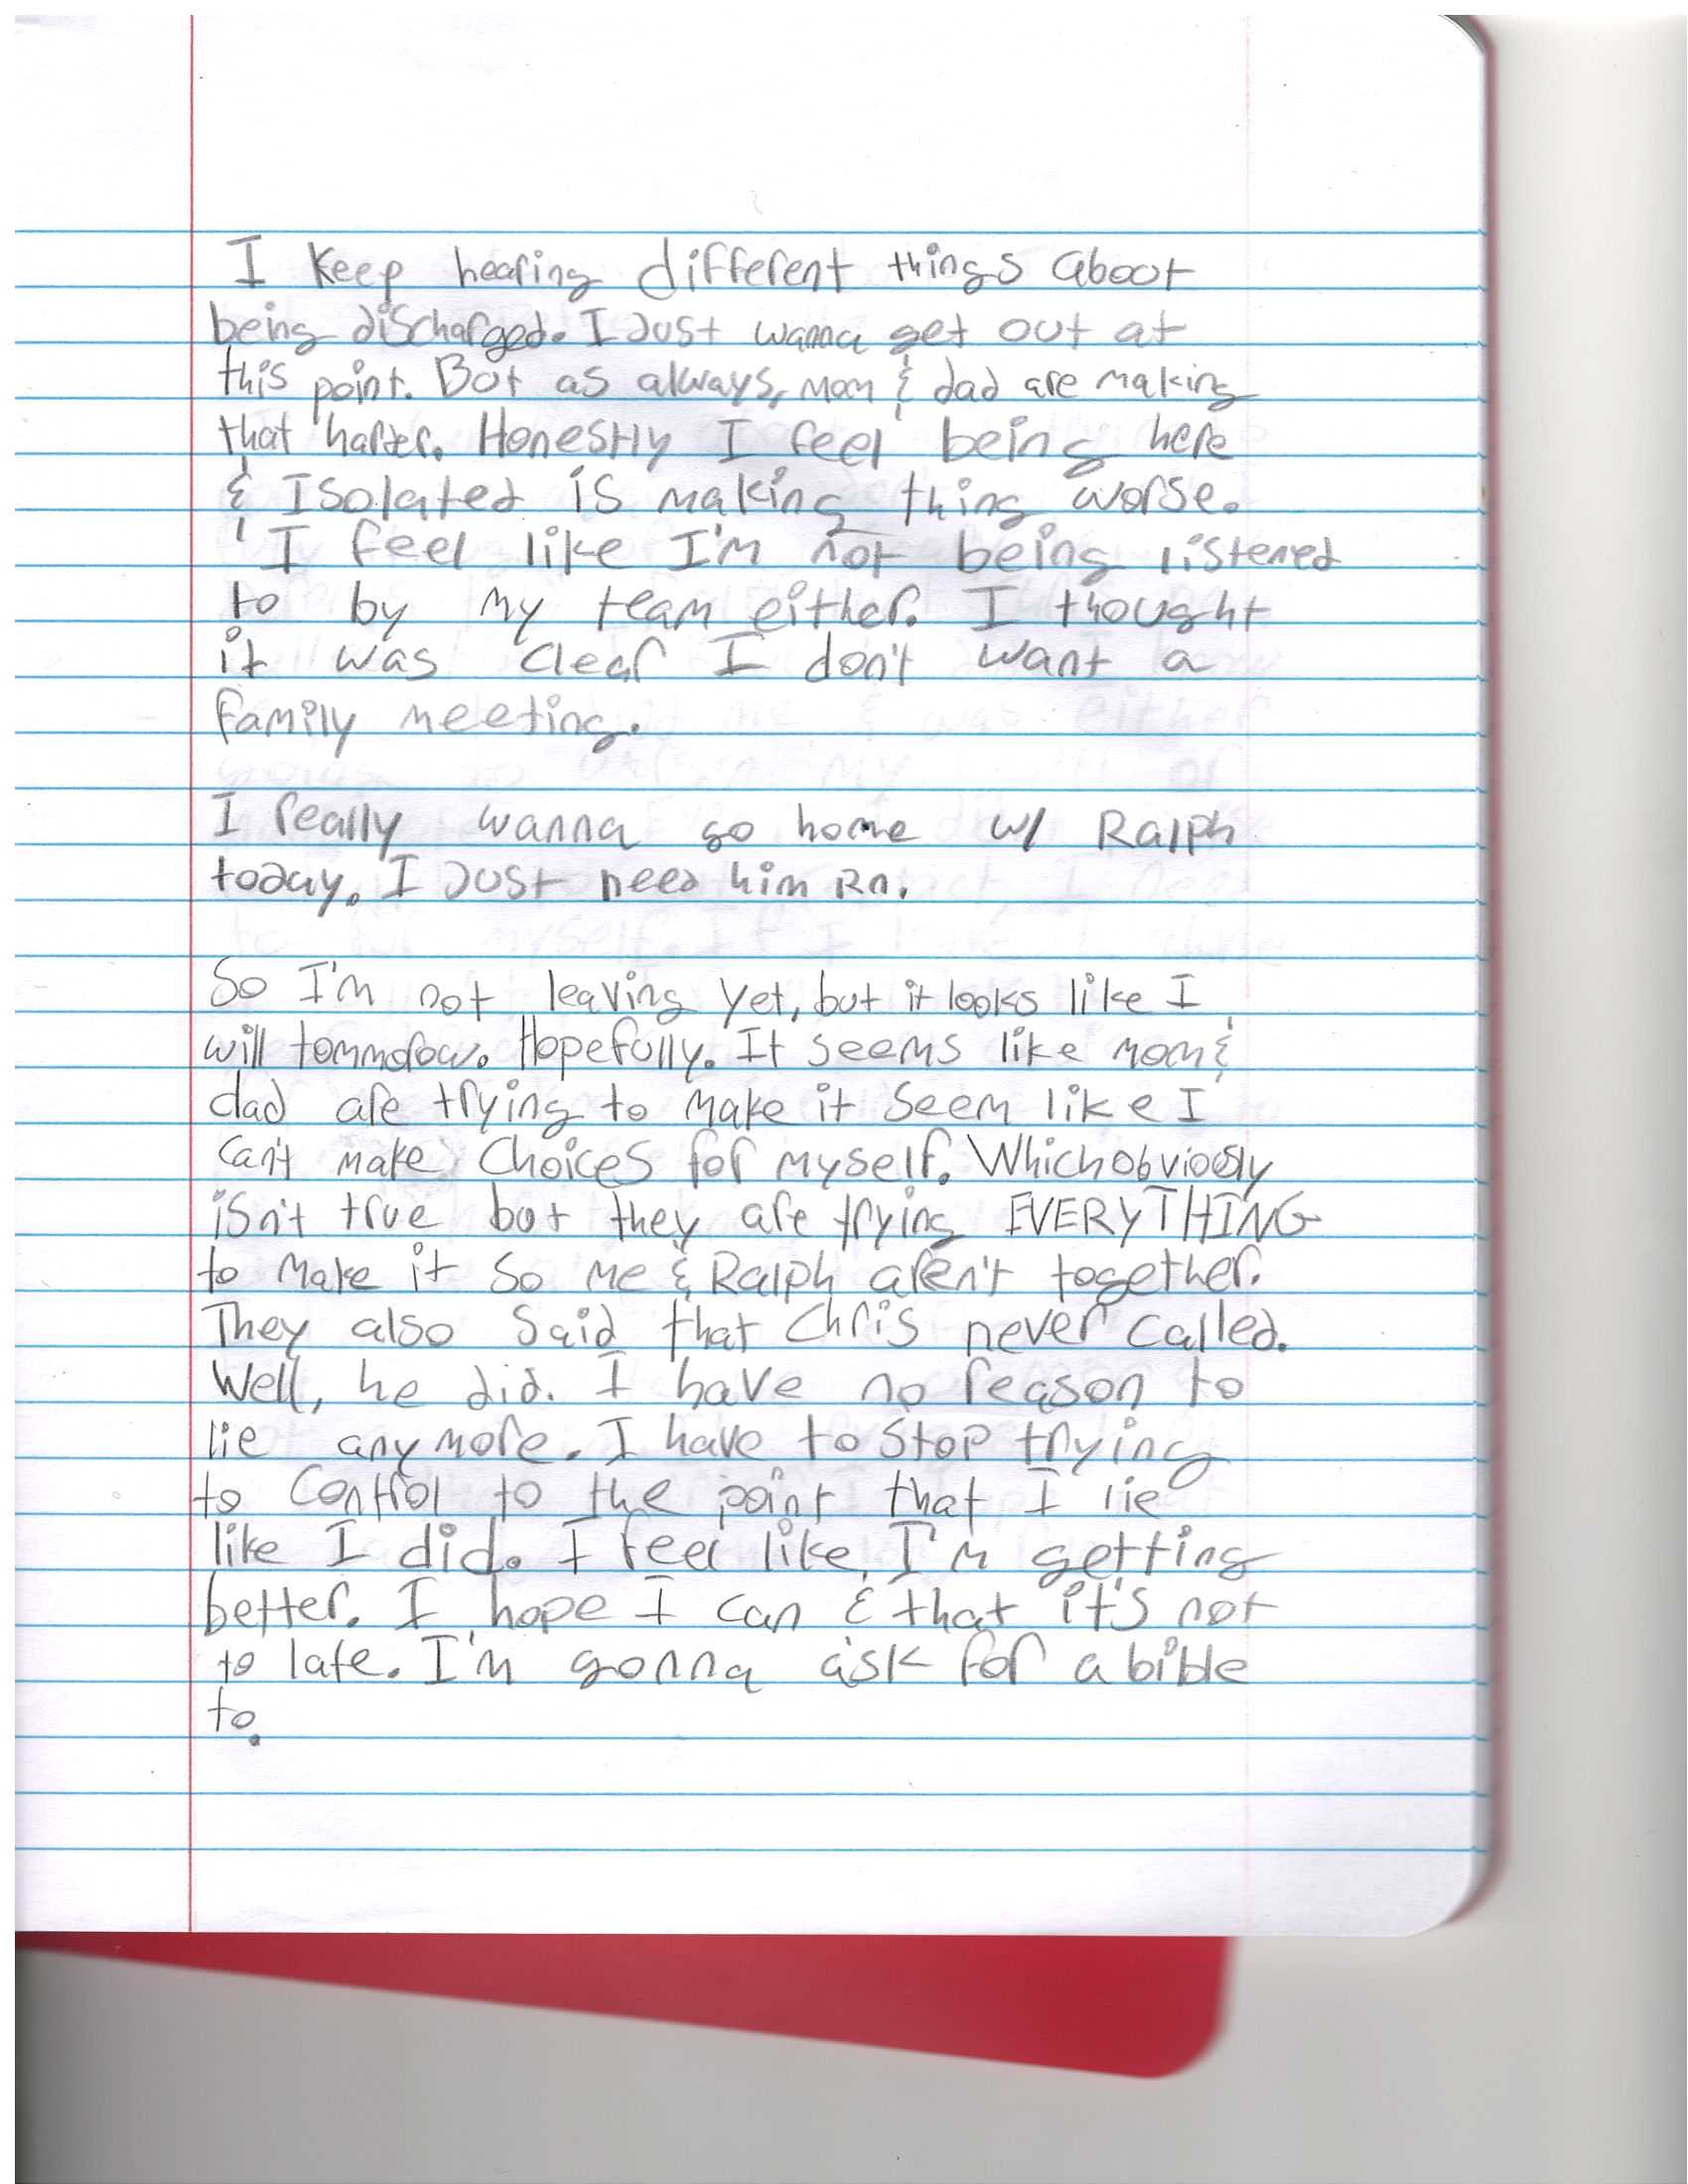 I keep hearing different things about
being discharged. I Just wanna get out at
this point. But as always, mom & dad are making
that harder. Honestly I feel being here
& Isolated is making thing worse.
I feel like I'm not being listened
to by my team either. I thought
it was clear I don't want a
family meeting.
I really wanna go home w/ Ralph
today. I Just need him Rn.
So I'm not leaving yet, but it looks like I
will tommorow. Hopefully. It seems like mom &
dad are trying to make it seem like I
can't make choices for myself. Which obviously
isn't true but they are trying EVERYTHING
to make it so me & Ralph aren't together.
They also said that Chris never called.
Well, he did. I have no reason to
lie anymore. I have to stop trying
to control to the point that I lie
like I did. I feel like I'm getting
better. I hope I can & that it's not
to late. I'm gonna ask for a bible
to.